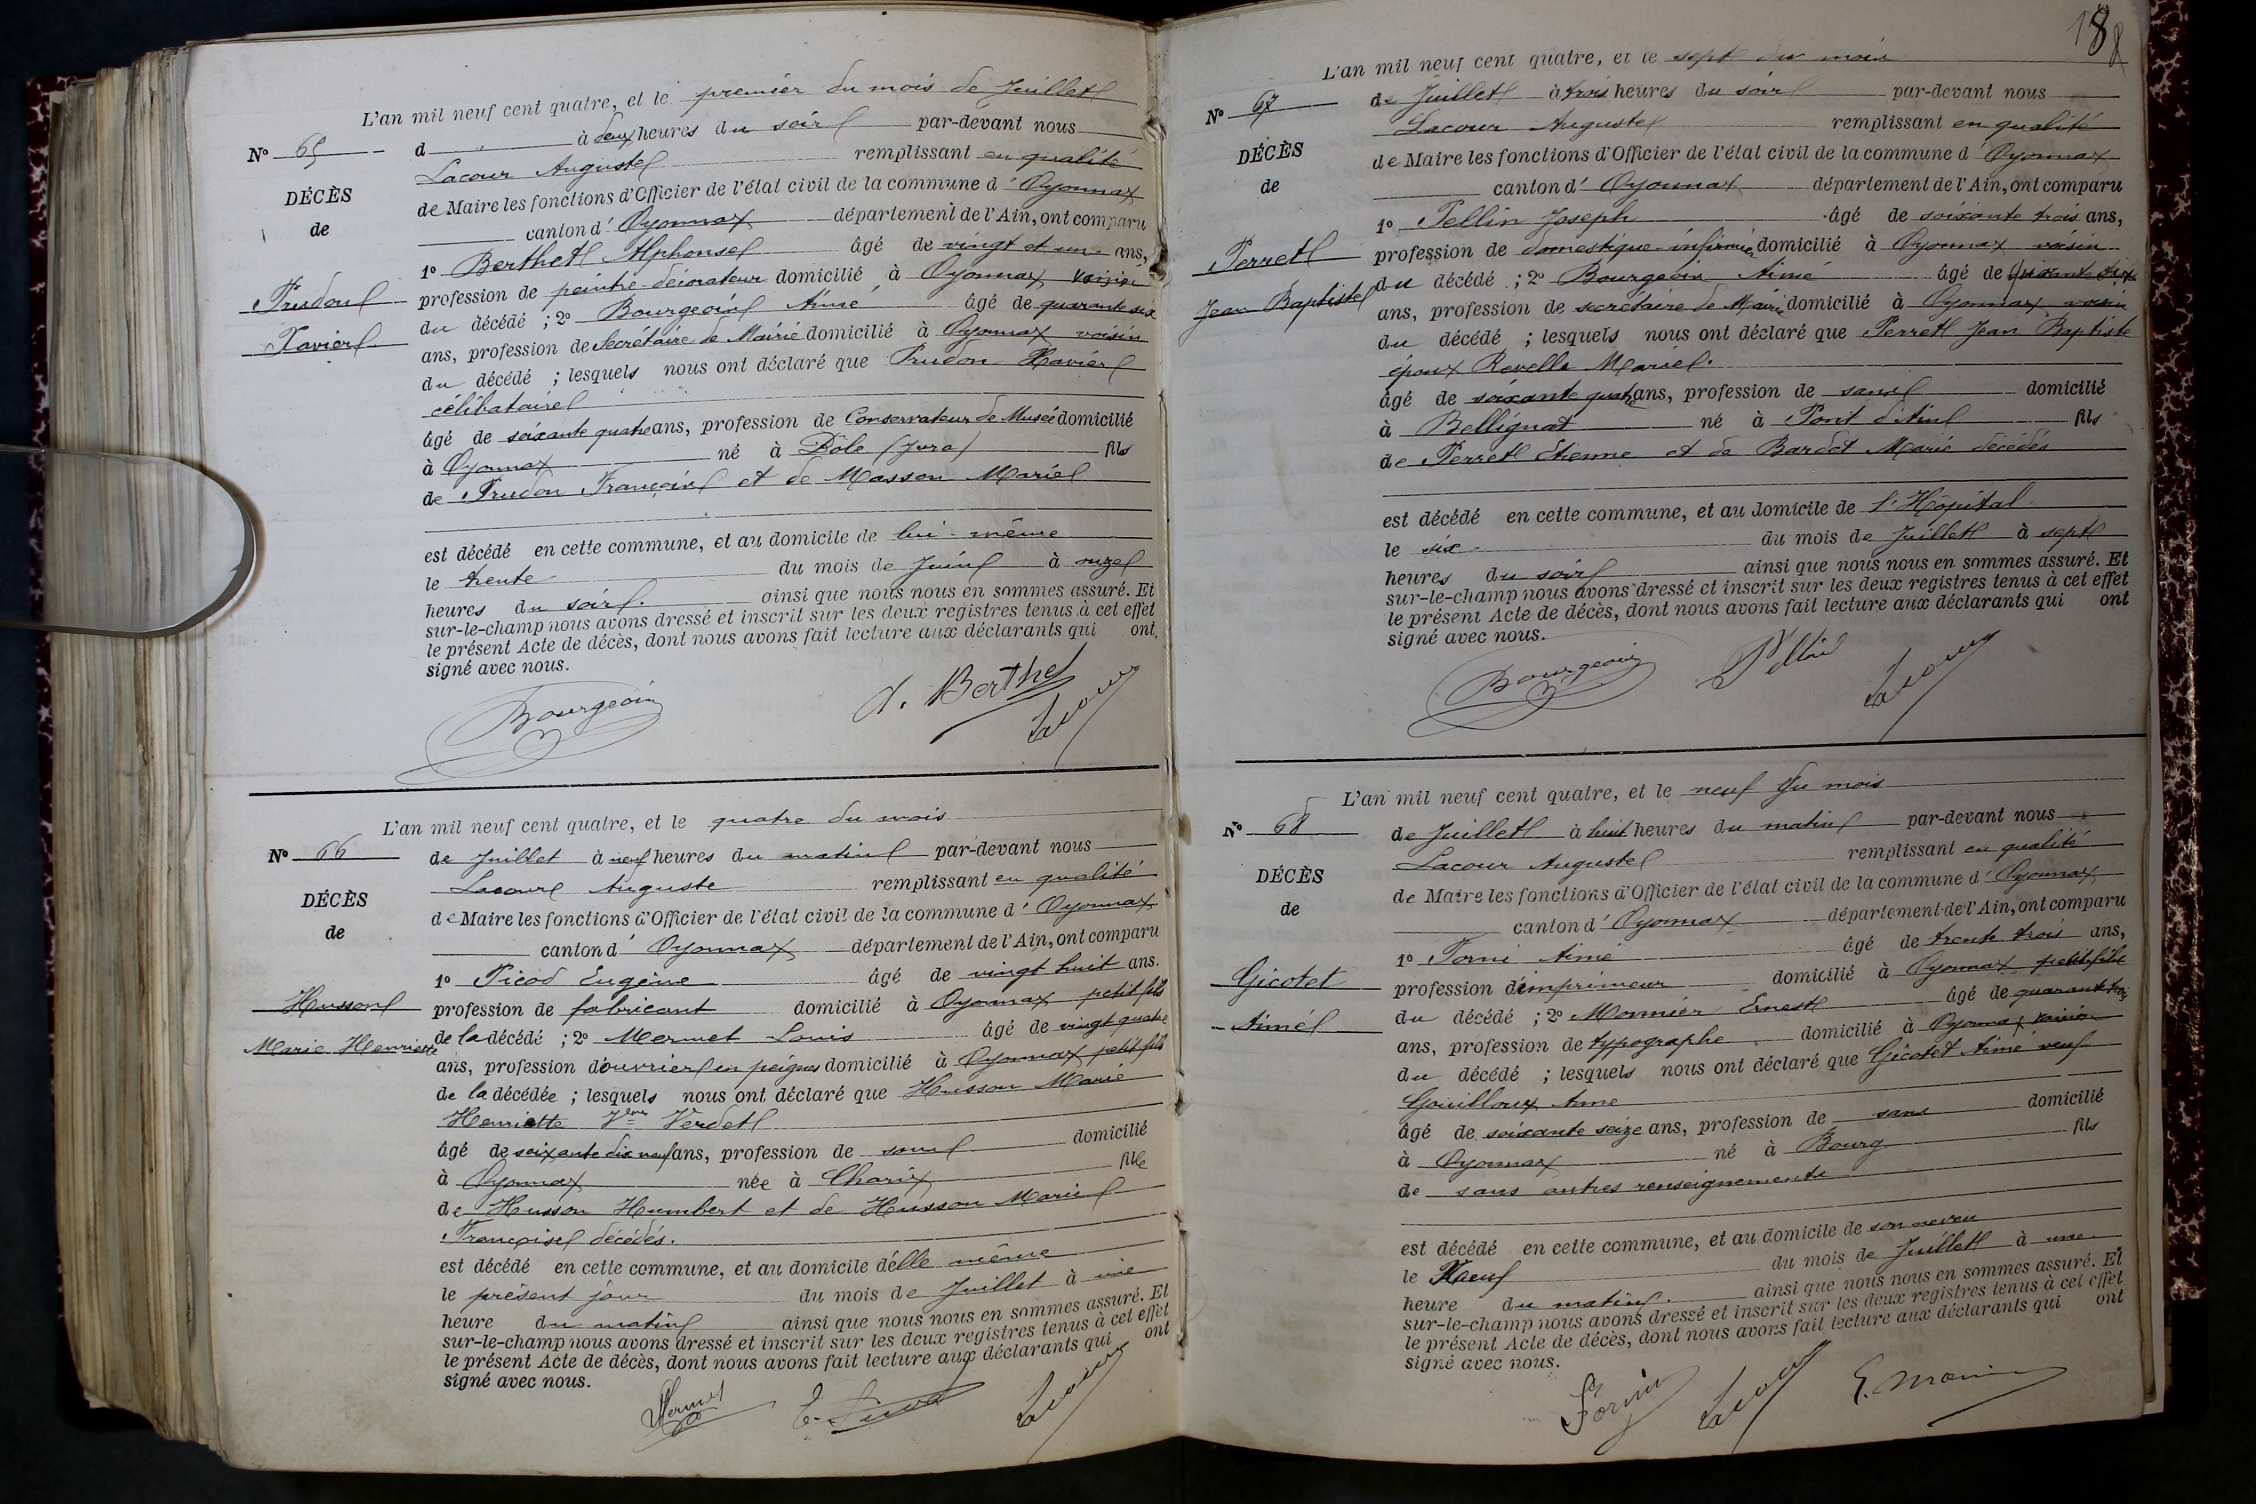 L'an mil neuf cent quatre, et le premier du mois de Juillet
d à deux heures du soir par-devant nous
Lacour Auguste remplissant en qualité
de Maire les fonctions d'Officier de l'état civil de la commune d'Oyonnax
canton d'Oyonnax département de l'Ain, ont comparu
1º Berthet Alphonse âgé de vingt et un ans,
profession de peintre-décorateur domicilié à Oyonnax voisin
du décédé ; 2º Bourgeois Aimé âgé de quarante six
ans, profession de Secrétaire de Mairie domicilié à Oyonnax voisin
du décédé ; lesquels nous ont déclaré que Prudon Xavier
célibataire
âgé de soixante quatre ans, profession de Conservateur de Musée domicilié
à Oyonnax né à Dôle (Jura) fils
de Prudon François et de Masson Marie
est décédé en cette commune, et au domicile de lui-même
le trente du mois de Juin à onze
heures du soir. ainsi que nous nous en sommes assuré. Et
sur-le-champ nous avons dressé et inscrit sur les deux registres tenus à cet effet
le présent Acte de décès, dont nous avons fait lecture aux déclarants qui ont
signé avec nous.
Bourgeois A. Berthet Lacour
Nº 65
DÉCÈS
de
Prudon
Xavier
L'an mil neuf cent quatre, et le quatre du mois
de Juillet à neuf heures du matin par-devant nous
Lacour Auguste remplissant en qualité
de Maire les fonctions d'Officier de l'état civil de la commune d'Oyonnax
canton d'Oyonnax département de l'Ain, ont comparu
1º Picod Eugène âgé de vingt huit ans.
profession de fabricant domicilié à Oyonnax petit fils
de la décédé ; 2º Mermet Louis âgé de vingt quatre
ans, profession d'ouvrier en peignes domicilié à Oyonnax petit fils
de la décédée ; lesquels nous ont déclaré que Husson Marie
Henriette Vve Verdet
âgé de soixante dix neuf ans, profession de sans domicilié
à Oyonnax née à Charix fille
de Husson Humbert et de Husson Marie
Françoise décédés.
est décédé en cette commune, et au domicile d'elle même
le présent jour du mois de Juillet à une
heure du matin ainsi que nous nous en sommes assuré. Et
sur-le-champ nous avons dressé et inscrit sur les deux registres tenus à cet effet
le présent Acte de décès, dont nous avons fait lecture aux déclarants qui ont
signé avec nous.
Mermet E. Picod Lacour
Nº 66
DÉCÈS
de
Husson
Marie Henriette
188
L'an mil neuf cent quatre, et le sept du mois
de Juillet à trois heures du soir par-devant nous
Lacour Auguste remplissant en qualité
de Maire les fonctions d'Officier de l'état civil de la commune d'Oyonnax
canton d'Oyonnax département de l'Ain, ont comparu
1º Pellin Joseph âgé de soixante trois ans,
profession de domestique-infirmier domicilié à Oyonnax voisin
du décédé ; 2º Bourgeois Aimé âgé de quarante six
ans, profession de secrétaire de Mairie domicilié à Oyonnax voisin
du décédé ; lesquels nous ont déclaré que Perret Jean Baptiste
époux Revelle Marie.
âgé de soixante quatre ans, profession de sans domicilié
à Bellignat né à Pont d'Ain fils
de Perret Etienne et de Bardet Marie décédés
est décédé en cette commune, et au domicile de l'Hôpital
le six du mois de Juillet à sept
heures du soir ainsi que nous nous en sommes assuré. Et
sur-le-champ nous avons dressé et inscrit sur les deux registres tenus à cet effet
le présent Acte de décès, dont nous avons fait lecture aux déclarants qui ont
signé avec nous.
Bourgeois Pellin Lacour
Nº 67
DÉCÈS
de
Perret
Jean Baptiste
L'an mil neuf cent quatre, et le neuf du mois
de Juillet à huit heures du matin par-devant nous
Lacour Auguste remplissant en qualité
de Maire les fonctions d'Officier de l'état civil de la commune d'Oyonnax
canton d'Oyonnax département de l'Ain, ont comparu
1º Forni Aimé âgé de trente trois ans,
profession d'imprimeur domicilié à Oyonnax petit fils
du décédé ; 2º Monnier Ernest âgé de quarante trois
ans, profession de typographe domicilié à Oyonnax voisin
du décédé ; lesquels nous ont déclaré que Gicotet Aimé veuf
Gouilloux Anne
âgé de soixante seize ans, profession de sans domicilié
à Oyonnax né à Bourg fils
de sans autres renseignements
est décédé en cette commune, et au domicile de son neveu
le Neuf du mois de Juillet à une
heure du matin. ainsi que nous nous en sommes assuré. Et
sur-le-champ nous avons dressé et inscrit sur les deux registres tenus à cet effet
le présent Acte de décès, dont nous avons fait lecture aux déclarants qui ont
signé avec nous.
Lacour
Nº 68
DÉCÈS
de
Gicotet
Aimé